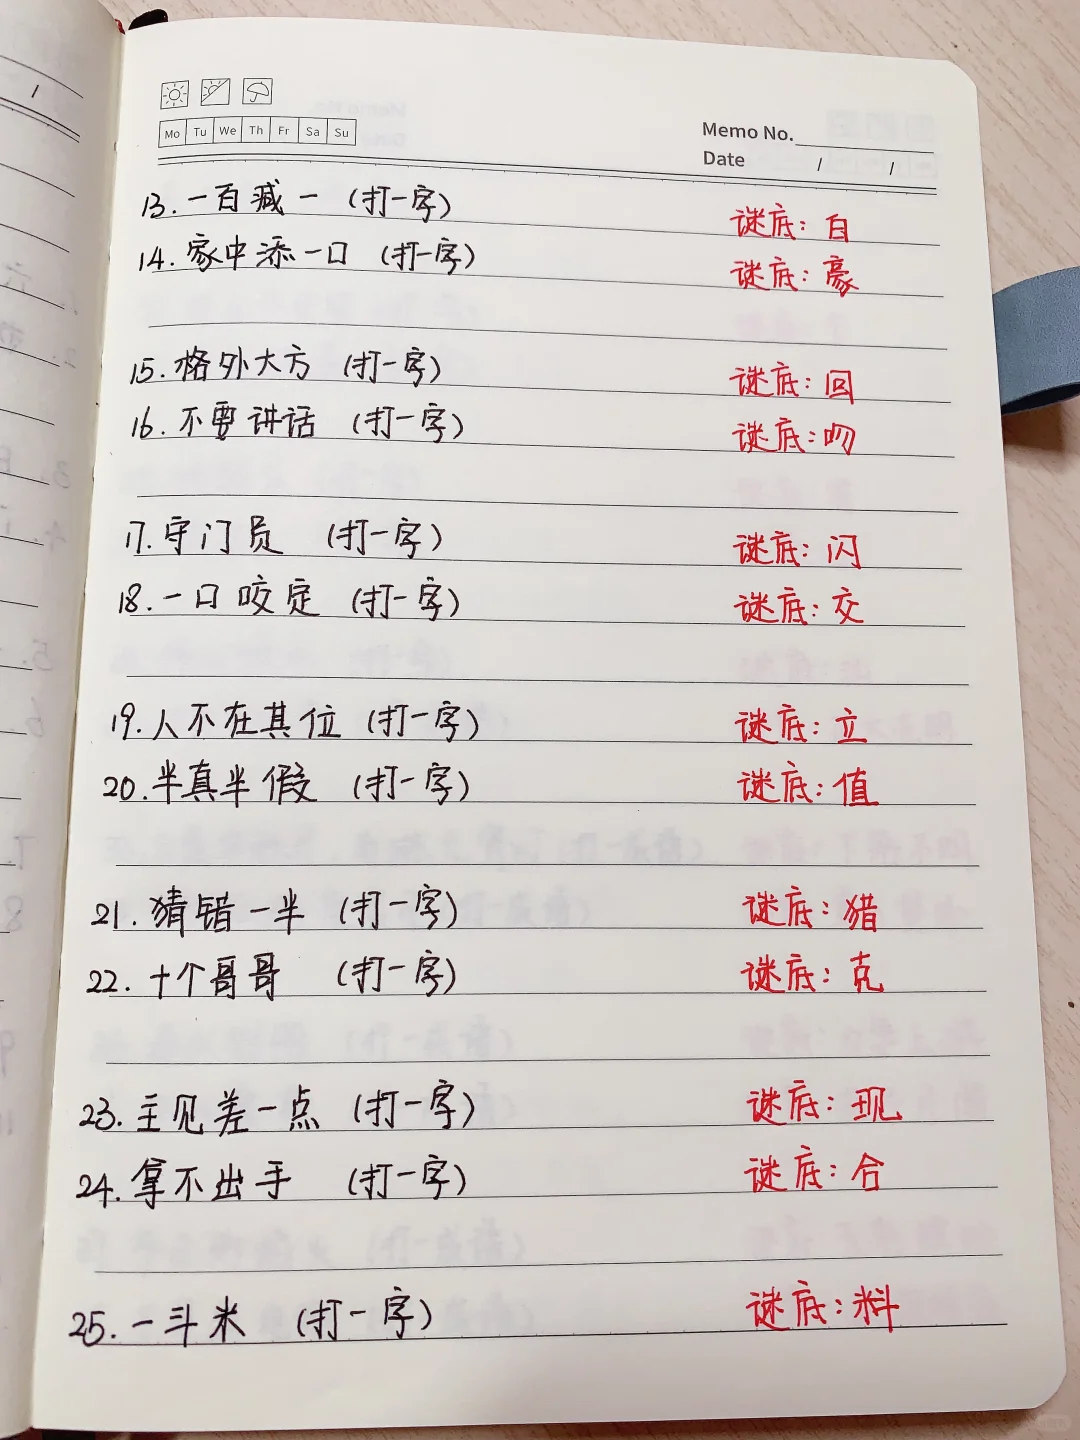 Mo Tu We Th Fr Sa Su
Memo No.
Date / /
13. 一百减一 (打一字) 谜底: 白
14. 家中添一口 (打一字) 谜底: 豪
15. 格外大方 (打一字) 谜底: 回
16. 不要讲话 (打一字) 谜底: 吻
17. 守门员 (打一字) 谜底: 闪
18. 一口咬定 (打一字) 谜底: 交
19. 人不在其位 (打一字) 谜底: 立
20. 半真半假 (打一字) 谜底: 值
21. 猜错一半 (打一字) 谜底: 猎
22. 十个哥哥 (打一字) 谜底: 克
23. 主见差一点 (打一字) 谜底: 现
24. 拿不出手 (打一字) 谜底: 合
25. 一斗米 (打一字) 谜底: 料